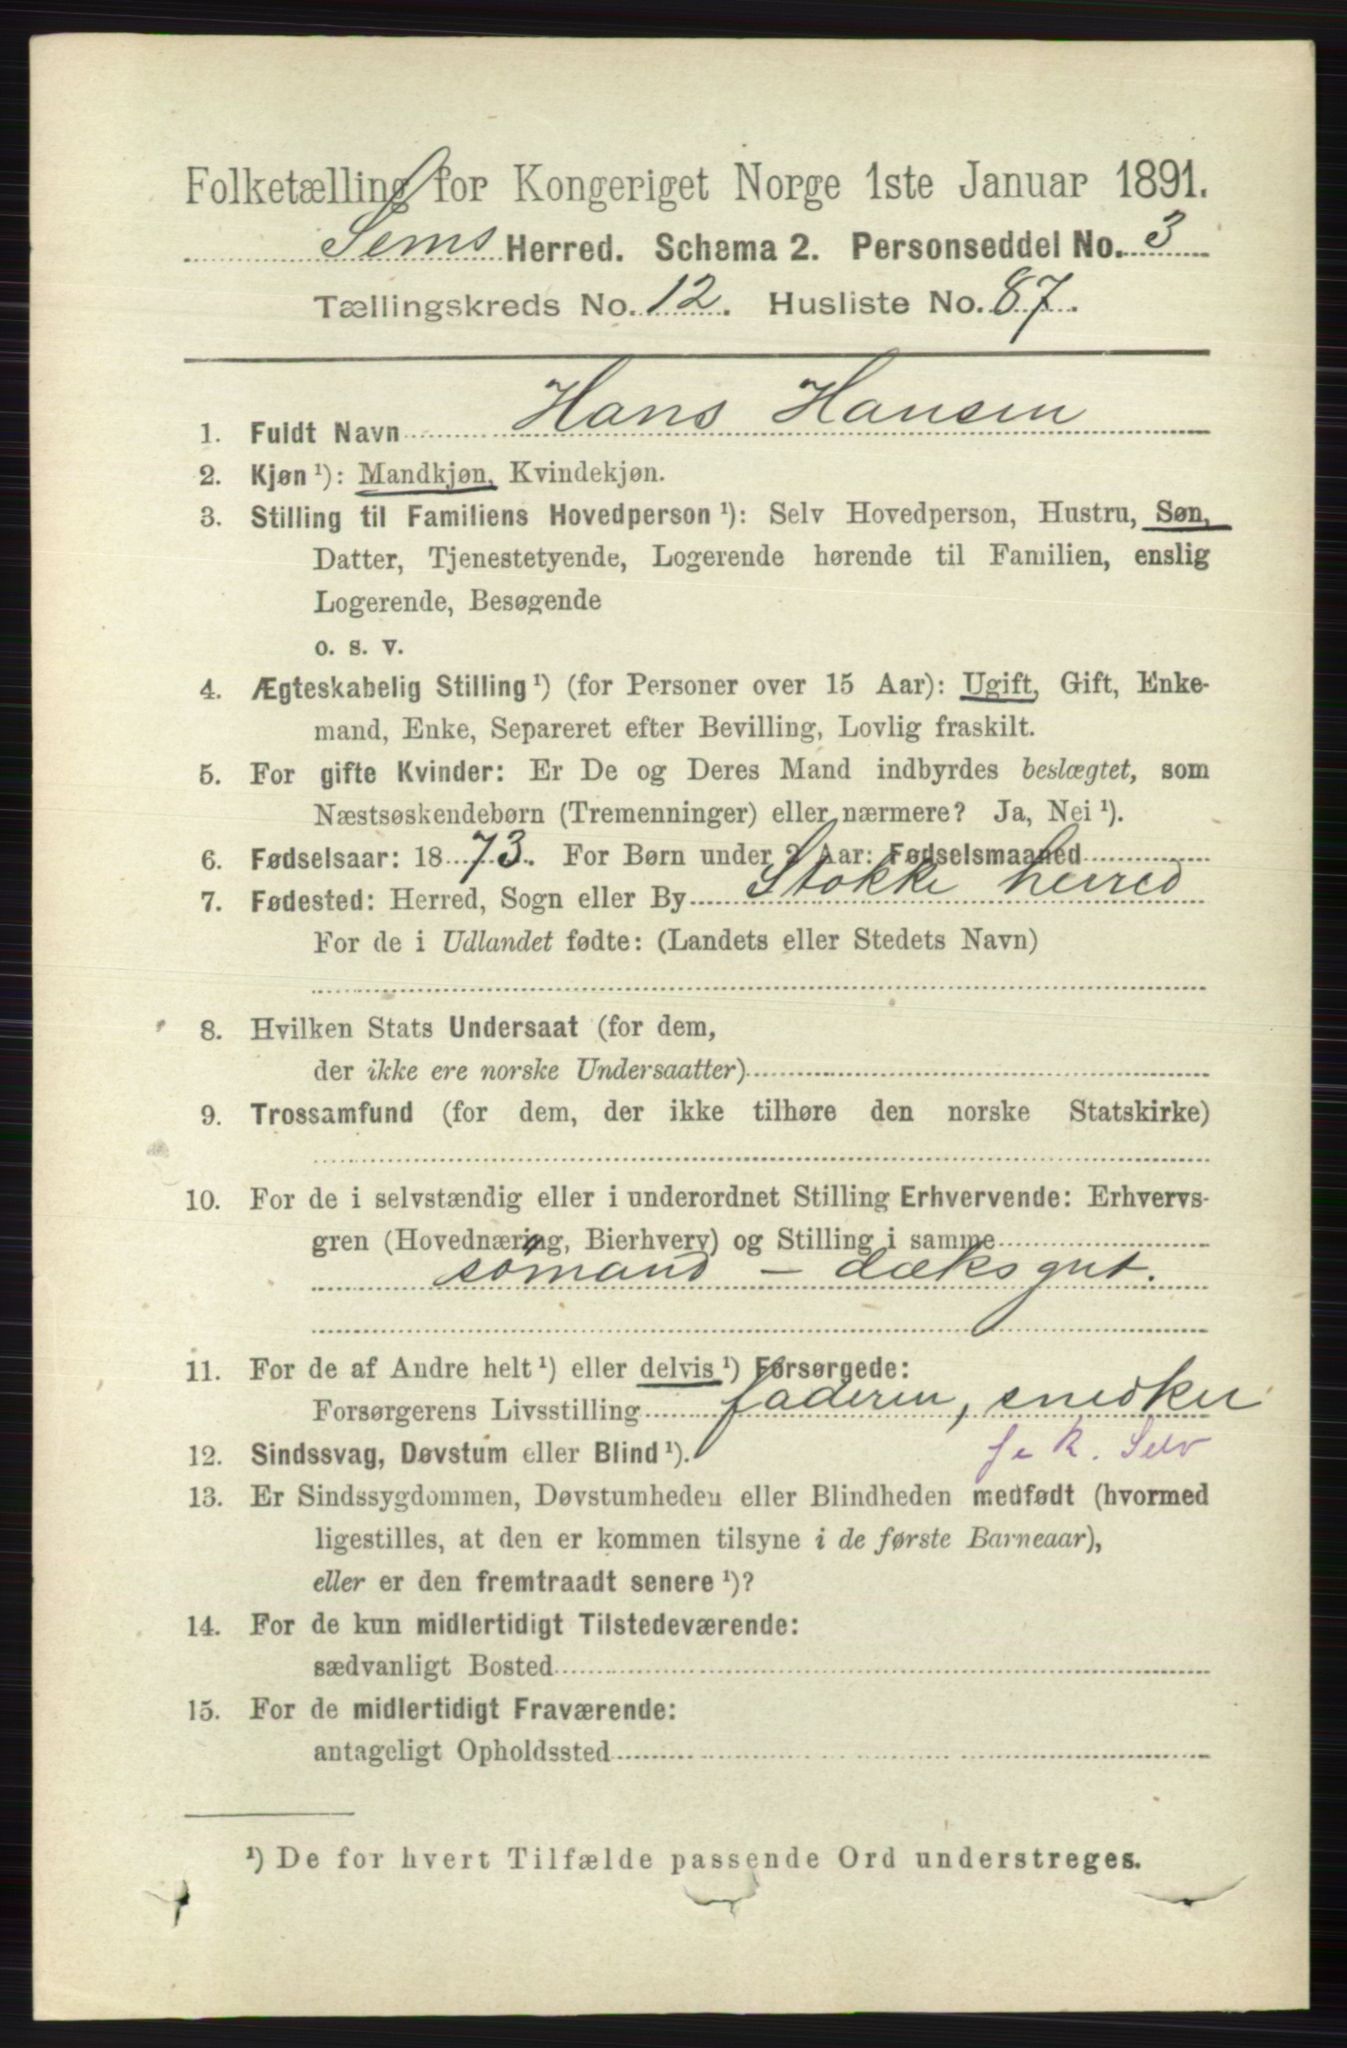 Folketælling for Kongeriget Norge 1ste Januar 1891.
Sems Herred. Schema 2. Personseddel No. 3
Tællingskreds No. 12. Husliste No. 87.
1. Fuldt Navn Hans Hansen
2. Kjøn ¹): Mandkjøn, Kvindekjøn.
3. Stilling til Familiens Hovedperson ¹): Selv Hovedperson, Hustru, Søn,
Datter, Tjenestetyende, Logerende hørende til Familien, enslig
Logerende, Besøgende
o. s. v.
4. Ægteskabelig Stilling ¹) (for Personer over 15 Aar): Ugift, Gift, Enke-
mand, Enke, Separeret efter Bevilling, Lovlig fraskilt.
5. For gifte Kvinder: Er De og Deres Mand indbyrdes beslægtet, som
Næstsøskendebørn (Tremenninger) eller nærmere? Ja, Nei ¹).
6. Fødselsaar: 18 73. For Børn under 2 Aar: Fødselsmaaned
7. Fødested: Herred, Sogn eller By Stokke herred
For de i Udlandet fødte: (Landets eller Stedets Navn)
8. Hvilken Stats Undersaat (for dem,
der ikke ere norske Undersaatter)
9. Trossamfund (for dem, der ikke tilhøre den norske Statskirke)
10. For de i selvstændig eller i underordnet Stilling Erhvervende: Erhvervs-
gren (Hovednæring, Bierhverv) og Stilling i samme
sømand - dæksgut.
11. For de af Andre helt ¹) eller delvis ¹) Forsørgede:
Forsørgerens Livsstilling faderen, snedker
12. Sindssvag, Døvstum eller Blind ¹). Selv
13. Er Sindssygdommen, Døvstumheden eller Blindheden medfødt (hvormed
ligestilles, at den er kommen tilsyne i de første Barneaar),
eller er den fremtraadt senere ¹)?
14. For de kun midlertidigt Tilstedeværende:
sædvanligt Bosted
15. For de midlertidigt Fraværende:
antageligt Opholdssted
¹) De for hvert Tilfælde passende Ord understreges.